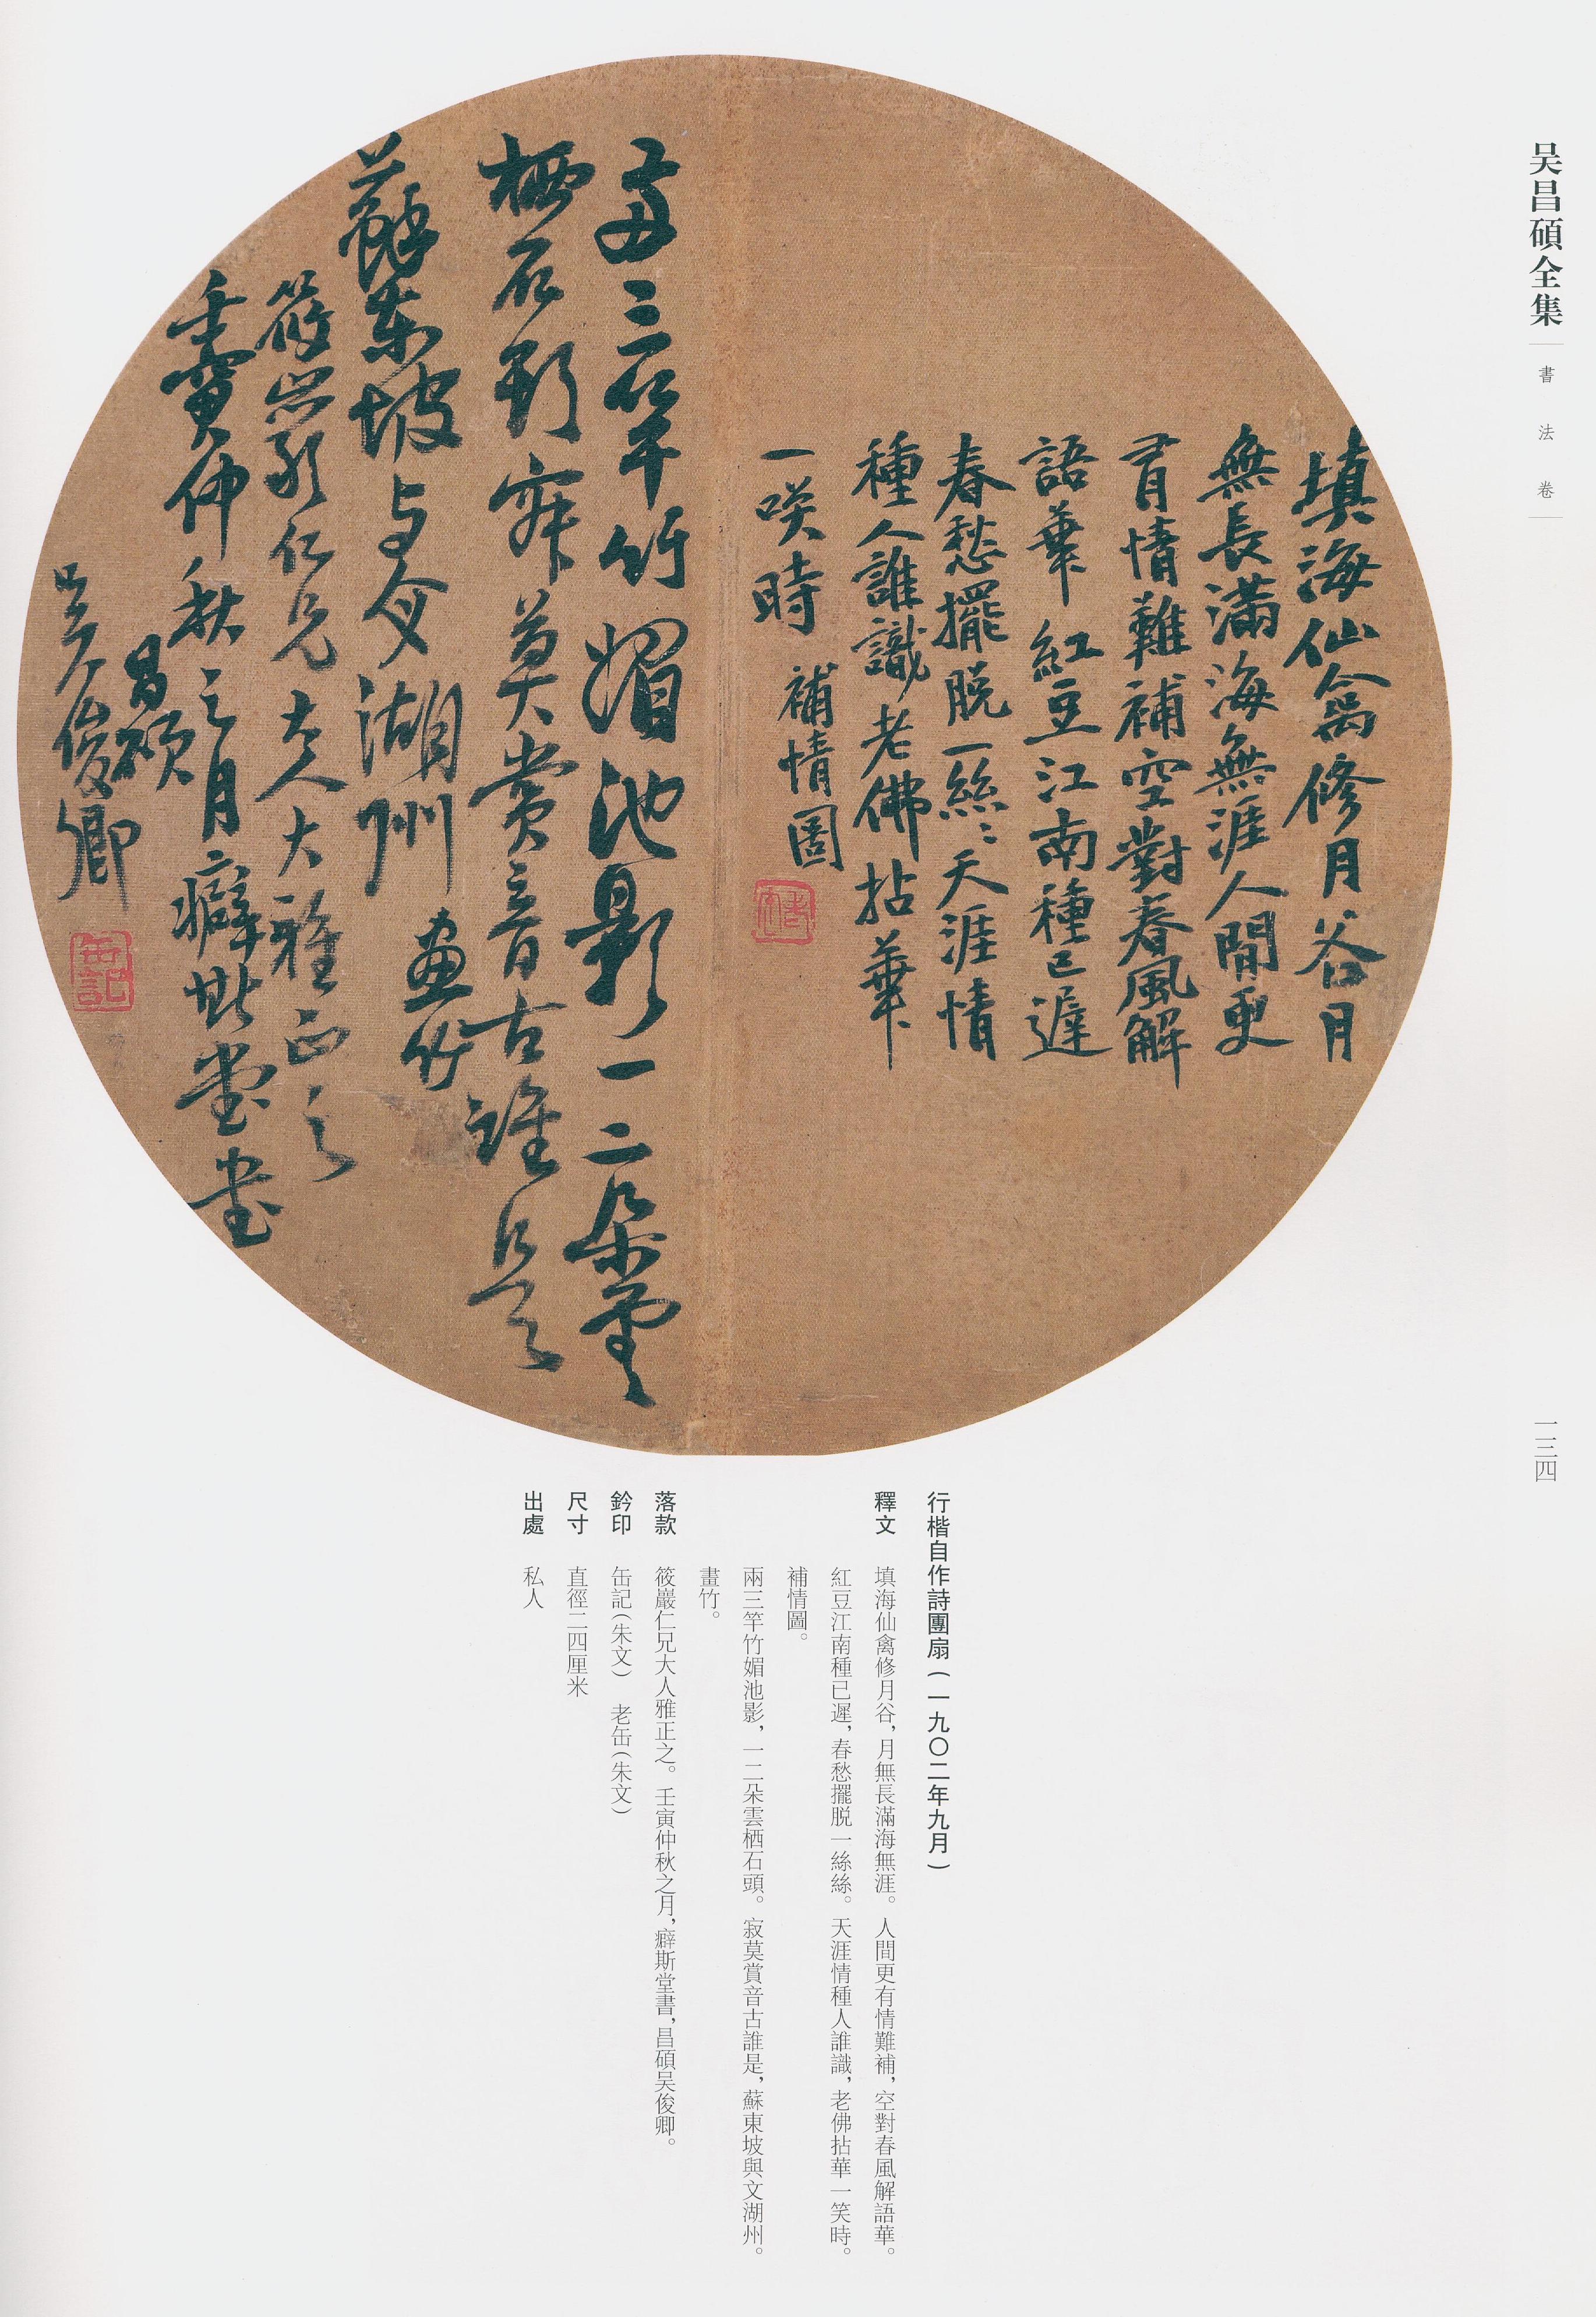 吴昌碩全集
書法卷
一三四
填海仙禽修月谷月
無長滿海無涯人間更
有情難補空對春風解
語華紅豆江南種已遲
春愁擺脱一絲〻天涯情
種人誰識老佛拈華
一笑時 補情圖
老缶
兩三竿竹媚池影一二朵雲
栖石頭寂莫賞音古誰是
蘇東坡与文湖州 畫竹
筱巖仁兄大人大雅正之
壬寅仲秋之月癖斯堂書
昌碩
吴俊卿
缶記
行楷自作詩團扇(一九〇二年九月)
釋文 填海仙禽修月谷，月無長滿海無涯。人間更有情難補，空對春風解語華。
紅豆江南種已遲，春愁擺脱一絲絲。天涯情種人誰識，老佛拈華一笑時。
補情圖。
兩三竿竹媚池影，一二朵雲栖石頭。寂莫賞音古誰是，蘇東坡與文湖州。
畫竹。
落款 筱巖仁兄大人雅正之。壬寅仲秋之月，癖斯堂書，昌碩吴俊卿。
鈐印 缶記(朱文) 老缶(朱文)
尺寸 直徑二四厘米
出處 私人